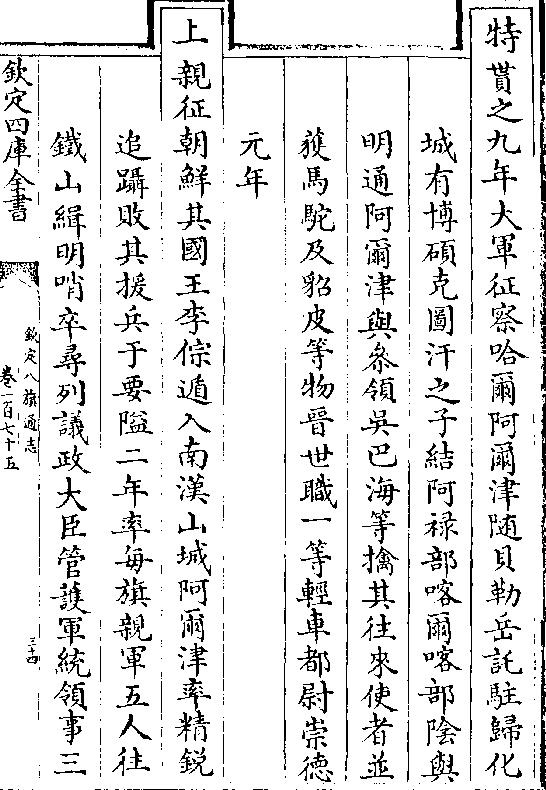 特貰之九年大軍征察哈爾阿爾津随貝勒岳託駐歸化
城有博碩克圖汗之子結阿禄部喀爾喀部陰與
明通阿爾津與叅領吳巴海等擒其往來使者並
獲馬駝及貂皮等物晉世職一等輕車都尉崇德
元年
上親征朝鮮其國王李倧遁入南漢山城阿爾津率精鋭
追躡敗其援兵于要隘二年率每旗親軍五人往
鐵山緝明哨卒尋列議政大臣管護軍統領事三
欽定四庫全書
欽定八旗通志
卷一百七十五
三十四